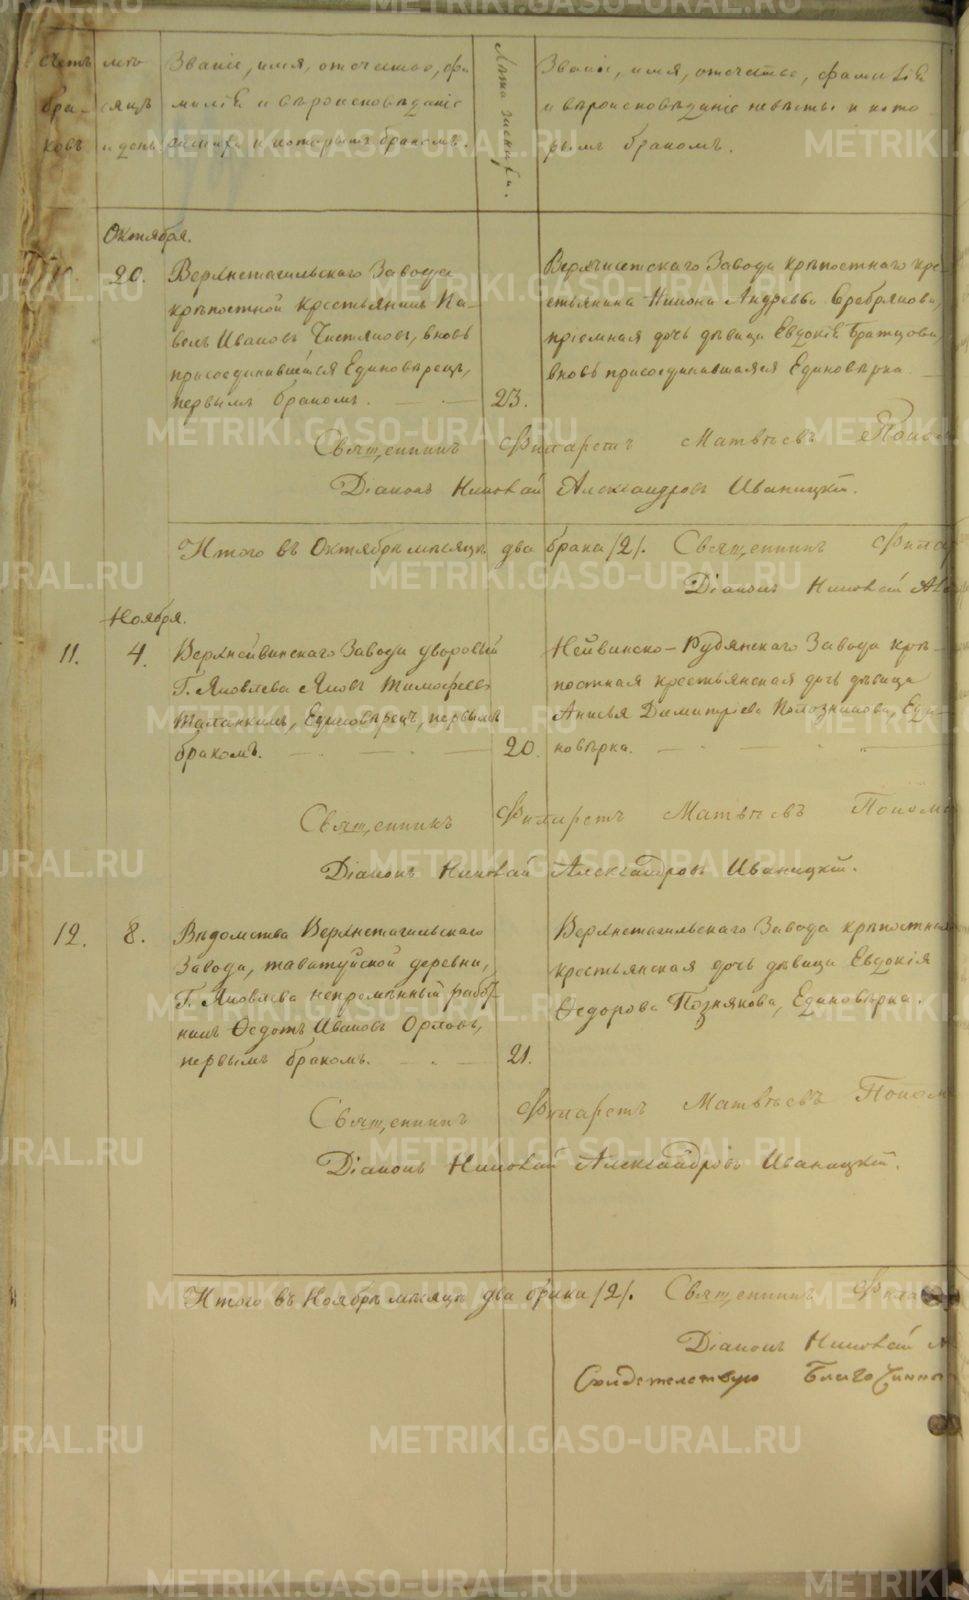 Счетъ бра-ковъ
мѣсяцъ и день.
Званіе, имя, отчество, фа-
милія и вѣроисповѣданіе
жениха и которымъ бракомъ.
Лѣта жениха.
Званіе, имя, отчество, фамилія
и вѣроисповѣданіе невѣсты и кото
рымъ бракомъ.
Октября.
20.
Верхнетагильскаго Завода
крѣпостной крестьянинъ Па-
велъ Ивановъ Чистяковъ, вновь
присоединившійся Единовѣрецъ,
первымъ бракомъ.
23.
Верхъисетскаго Завода крѣпостнаго кре-
стьянина Никона Андреева Серебрякова,
пріемная дочь дѣвица Евдокія Братцова,
вновь присоединившаяся Единовѣрка
Священникъ Филаретъ Матвѣевъ Поном
Діаконъ Николай Александровъ Иваницкій.
Итого въ Октябрѣ мѣсяцѣ два брака /2/. Священникъ Фила
Діаконъ Николай Ал
Ноября.
11.
4.
Верхнейвинскаго Завода дворовый
Г. Яковлева Яковъ Тимофеевъ
Таланкинъ, Единовѣрецъ, первымъ
бракомъ.
20.
Нейвинско-Рудянскаго Завода крѣ-
постная крестьянская дочь дѣвица
Анисья Димитріева Полозникова, Еди-
новѣрка.
Священникъ Филаретъ Матвѣевъ Поном
Діаконъ Николай Александровъ Иваницкій.
12.
8.
Вѣдомства Верхнетагильскаго
Завода, таватуйской деревни,
Г. Яковлева непремѣнный работ-
никъ Ѳедотъ Ивановъ Орловъ,
первымъ бракомъ.
21.
Верхнетагильскаго Завода крѣпостная
крестьянская дочь дѣвица Евдокія
Ѳедорова Познякова, Единовѣрка.
Священникъ Филаретъ Матвѣевъ Поном
Діаконъ Николай Александровъ Иваницкій.
Итого въ Ноябрѣ мѣсяцѣ два брака /2/. Священникъ Фила
Діаконъ Николай А
Свидетельствую Благочинны
METRIKI.GASO-URAL.RU